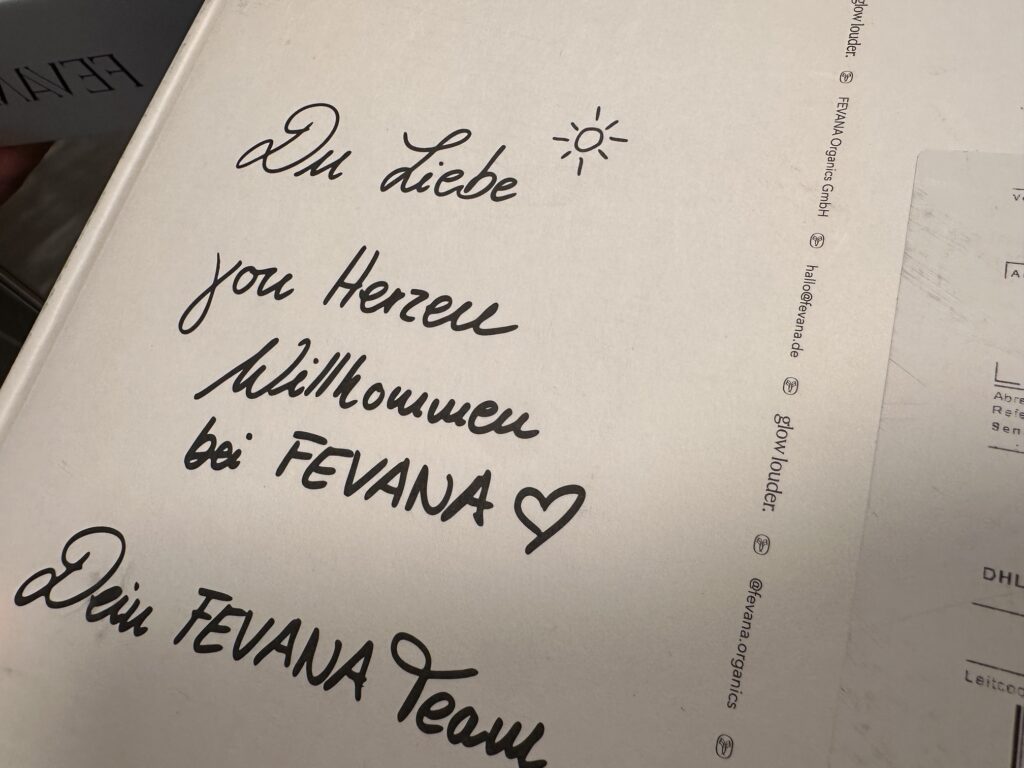 FEVAN
Du Liebe
von Herzen
Willkommen
bei FEVANA
Dein FEVANA Team
glow louder.
FEVANA Organics GmbH
hallo@fevana.de
glow louder.
@fevana.organics
DHL